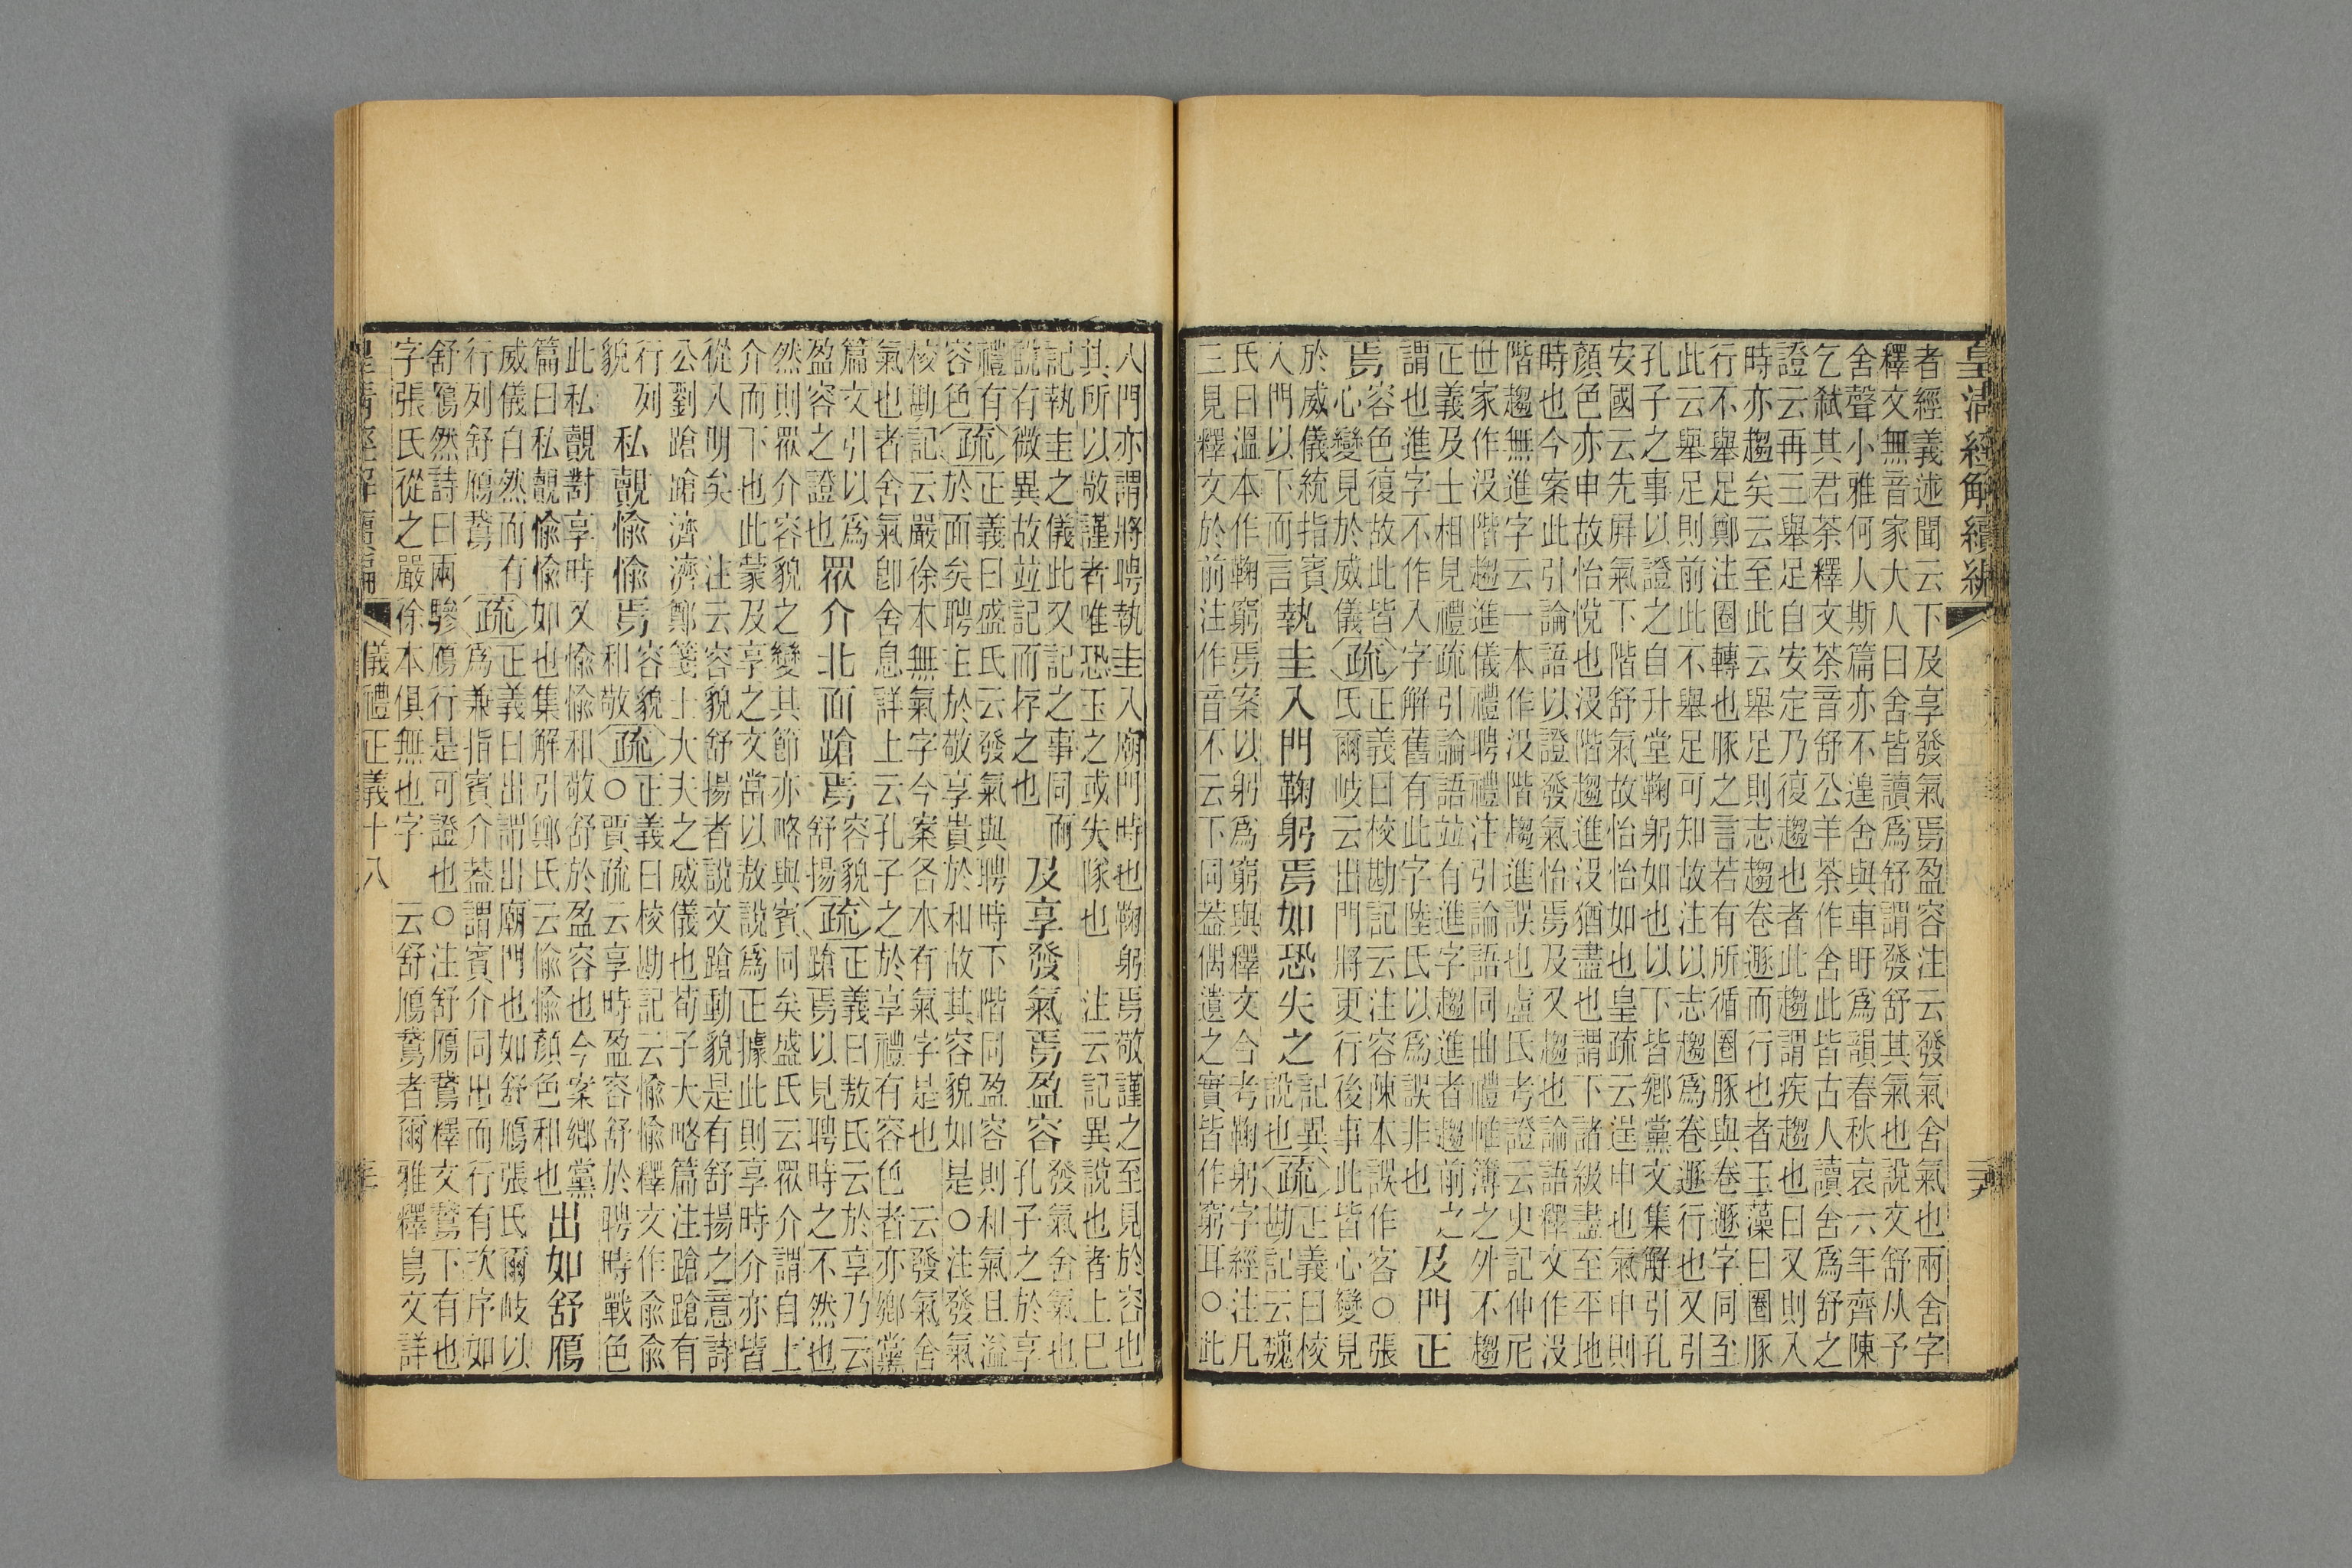 皇清經解續編
者經義述聞云下及享發氣焉盈容注云發氣舍氣也兩舍字
釋文無音家大人曰舍皆讀爲舒謂發舒其氣也說文舒从予
舍聲小雅何人斯篇亦不遑舍與車盱爲韻春秋哀六年齊陳
乞弒其君荼釋文荼音舒公羊荼作舍此皆古人讀舍爲舒之
證云再三舉足自安定乃復趨也者此趨謂疾趨也曰又則入
時亦趨矣云至此云舉足則志趨卷遯而行也者玉藻曰圈豚
行不舉足鄭注圈轉也豚之言若有所循圈豚與卷遯字同至
此云舉足則前此不舉足可知故注以志趨爲卷遯行也又引
孔子之事以證之自升堂鞠躬如也以下皆鄉黨文集解引孔
安國云先屏氣下階舒氣故怡怡如也皇疏云逞申也氣申則
顏色亦申故怡悅也沒階趨進沒猶盡也謂下諸級盡至平地
時也今案此引論語以證發氣怡焉及又趨也論語釋文作沒
階趨無進字云一本作沒階趨進誤也盧氏考證云史記仲尼
世家作沒階趨進儀禮聘禮注引論語同曲禮帷薄之外不趨
正義及士相見禮疏引論語竝有進字趨進者趨前之
謂也進字不作入字解舊有此字陸氏以爲誤非也
及門正
焉
容色復故此皆
心變見於威儀
疏
正義曰校勘記云注容陳本誤作客○張
氏爾岐云出門將更行後事此皆心變見
於威儀統指賓
入門以下而言
執圭入門鞠躬焉如恐失之
記異
說也
疏
正義曰校
勘記云魏
氏曰溫本作鞠窮焉案以躬爲窮與釋文合考鞠躬字經注凡
三見釋文於前注作音不云下同蓋偶遺之實皆作窮耳○此
入門亦謂將聘執圭入廟門時也鞠躬焉敬謹之至見於容也
其所以敬謹者唯恐玉之或失隊也 注云記異說也者上已
記執圭之儀此又記之事同而
說有微異故竝記而存之也
及享發氣焉盈容
發氣舍氣也
孔子之於享
禮有
容色
疏
正義曰盛氏云發氣與聘時下階同盈容則和氣且溢
於面矣聘主於敬享貴於和故其容貌如是○注發氣
校勘記云嚴徐本無氣字今案各本有氣字是也 云發氣舍
氣也者舍氣卽舍息詳上云孔子之於享禮有容色者亦鄉黨
篇文引以爲
盈容之證也
眾介北面蹌焉
容貌
舒揚
疏
正義曰敖氏云於享乃云
蹌焉以見聘時之不然也
然則眾介容貌之變其節亦略與賓同矣盛氏云眾介謂自上
介而下也此蒙及享之文當以敖說爲正據此則享時介亦皆
從入明矣 注云容貌舒揚者說文蹌動貌是有舒揚之意詩
公劉蹌蹌濟濟鄭箋士大夫之威儀也荀子大略篇注蹌蹌有
行列
貌
私覿愉愉焉
容貌
和敬
疏
正義曰校勘記云愉愉釋文作兪兪
○賈疏云享時盈容舒於聘時戰色
此私覿對享時又愉愉和敬舒於盈容也今案鄉黨
篇曰私覿愉愉如也集解引鄭氏云愉愉顏色和也
出如舒鴈
威儀自然而有
行列舒鴈鵞
疏
正義曰出謂出廟門也如舒鴈張氏爾岐以
爲兼指賓介蓋謂賓介同出而行有次序如
舒鴈然詩曰兩驂鴈行是可證也○注舒鴈鵞釋文鵞下有也
字張氏從之嚴徐本俱無也字 云舒鴈鵞者爾雅釋鳥文詳
儀禮正義十八